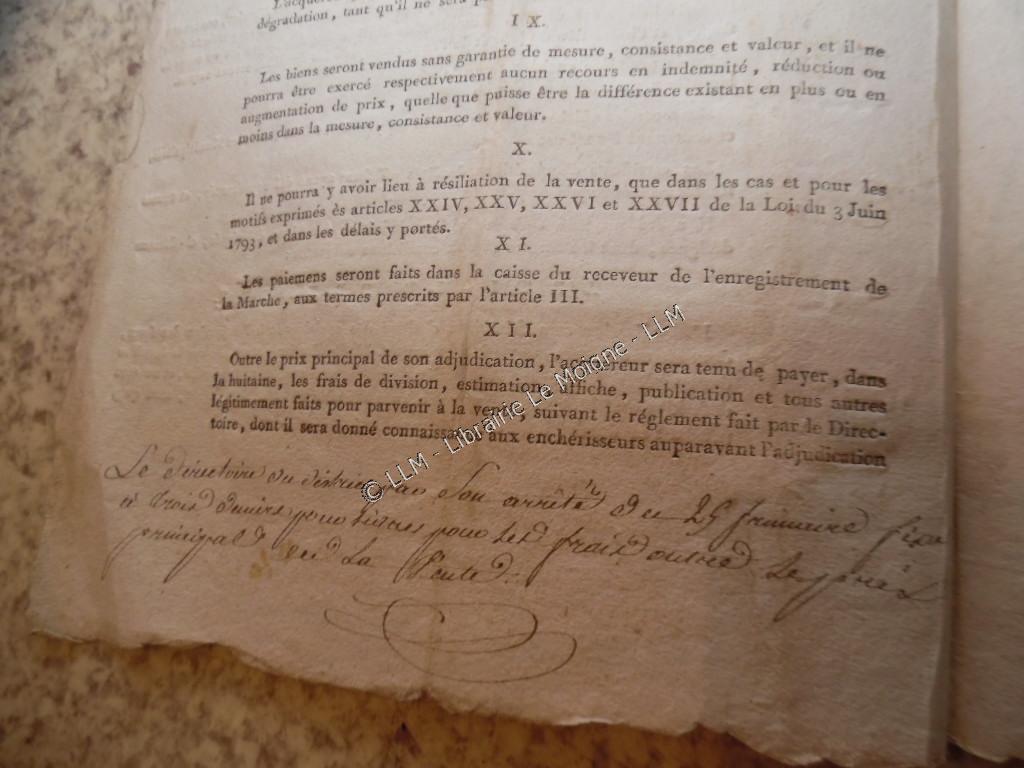 L'acquére
dégradation, tant qu'il ne sera p
IX.
Les biens seront vendus sans garantie de mesure, consistance et valeur, et il ne
pourra être exercé respectivement aucun recours en indemnité, réduction ou
augmentation de prix, quelle que puisse être la différence existant en plus ou en
moins dans la mesure, consistance et valeur.
X.
Il ne pourra y avoir lieu à résiliation de la vente, que dans les cas et pour les
motifs exprimés ès articles XXIV, XXV, XXVI et XXVII de la Loi du 3 Juin
1793, et dans les délais y portés.
XI.
Les paiemens seront faits dans la caisse du receveur de l'enregistrement de
la Marche, aux termes prescrits par l'article III.
XII.
Outre le prix principal de son adjudication, l'acquéreur sera tenu de payer, dans
la huitaine, les frais de division, estimation, affiche, publication et tous autres
légitimement faits pour parvenir à la vente, suivant le réglement fait par le Direc-
toire, dont il sera donné connaissance aux enchérisseurs auparavant l'adjudication
Le Directoire du district par son arrêté du 25 frimaire fixe
à trois deniers pour livres pour les frais outre le prix
principal de la Vente.
© LLM - Librairie Le Moigne - LLM